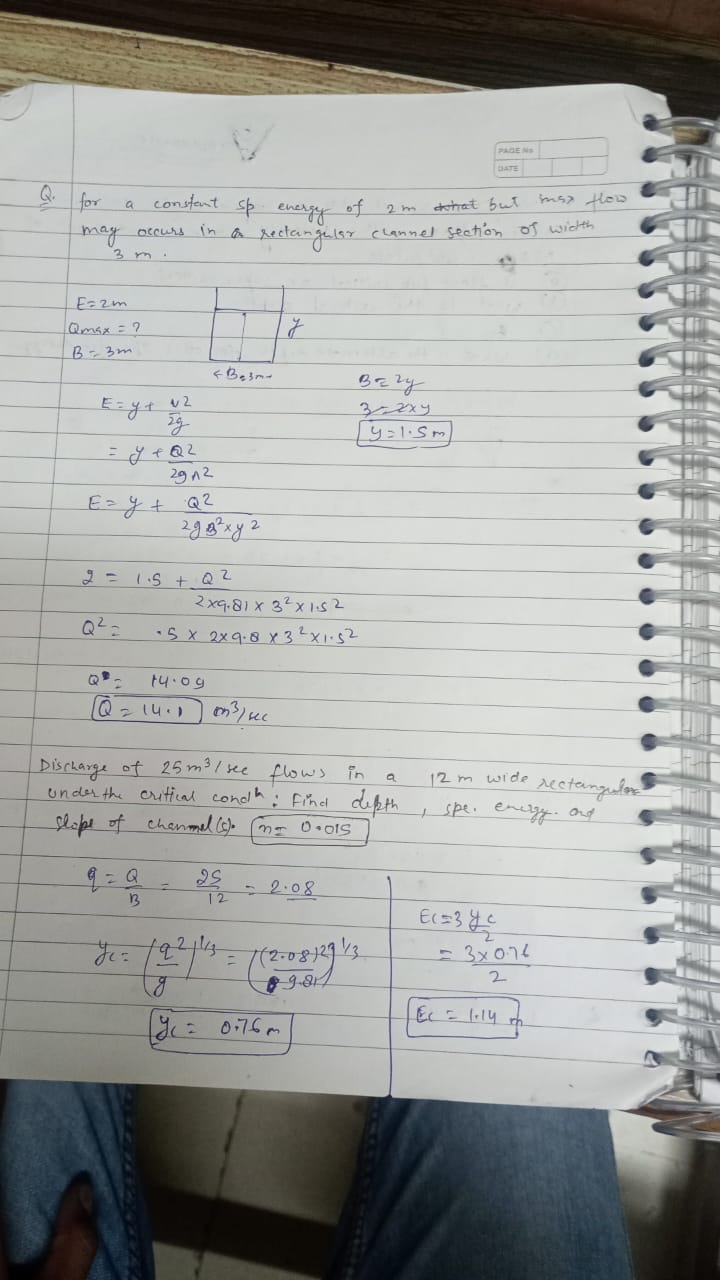 PAGE No
DATE
Q. for a constant sp. energy of 2m but max flow
may occurs in a rectangular channel section of width
3 m.
E=2m
Qmax = ?
B = 3m
y
B=3m
B = 2y
3 = 2xy
y=1.5m
E = y + v2/2g
= y + Q2/2gA2
E = y + Q2/2gB2xy2
2 = 1.5 + Q2/2x9.81 x 32 x 1.52
Q2 = .5 x 2x9.8 x 32 x1.52
Q = 14.09
Q = 14.1 m3/sec
Discharge of 25m3/sec flows in a 12 m wide rectangular
under the critical condn: Find depth, spe. energy. and
slope of channel(s). n= 0.015
q = Q/B = 25/12 = 2.08
yc = (q2/g)1/3 = ((2.08)2/9.81)1/3
yc = 0.76m
Ec=3yc/2
= 3x0.76/2
Ec = 1.14 m